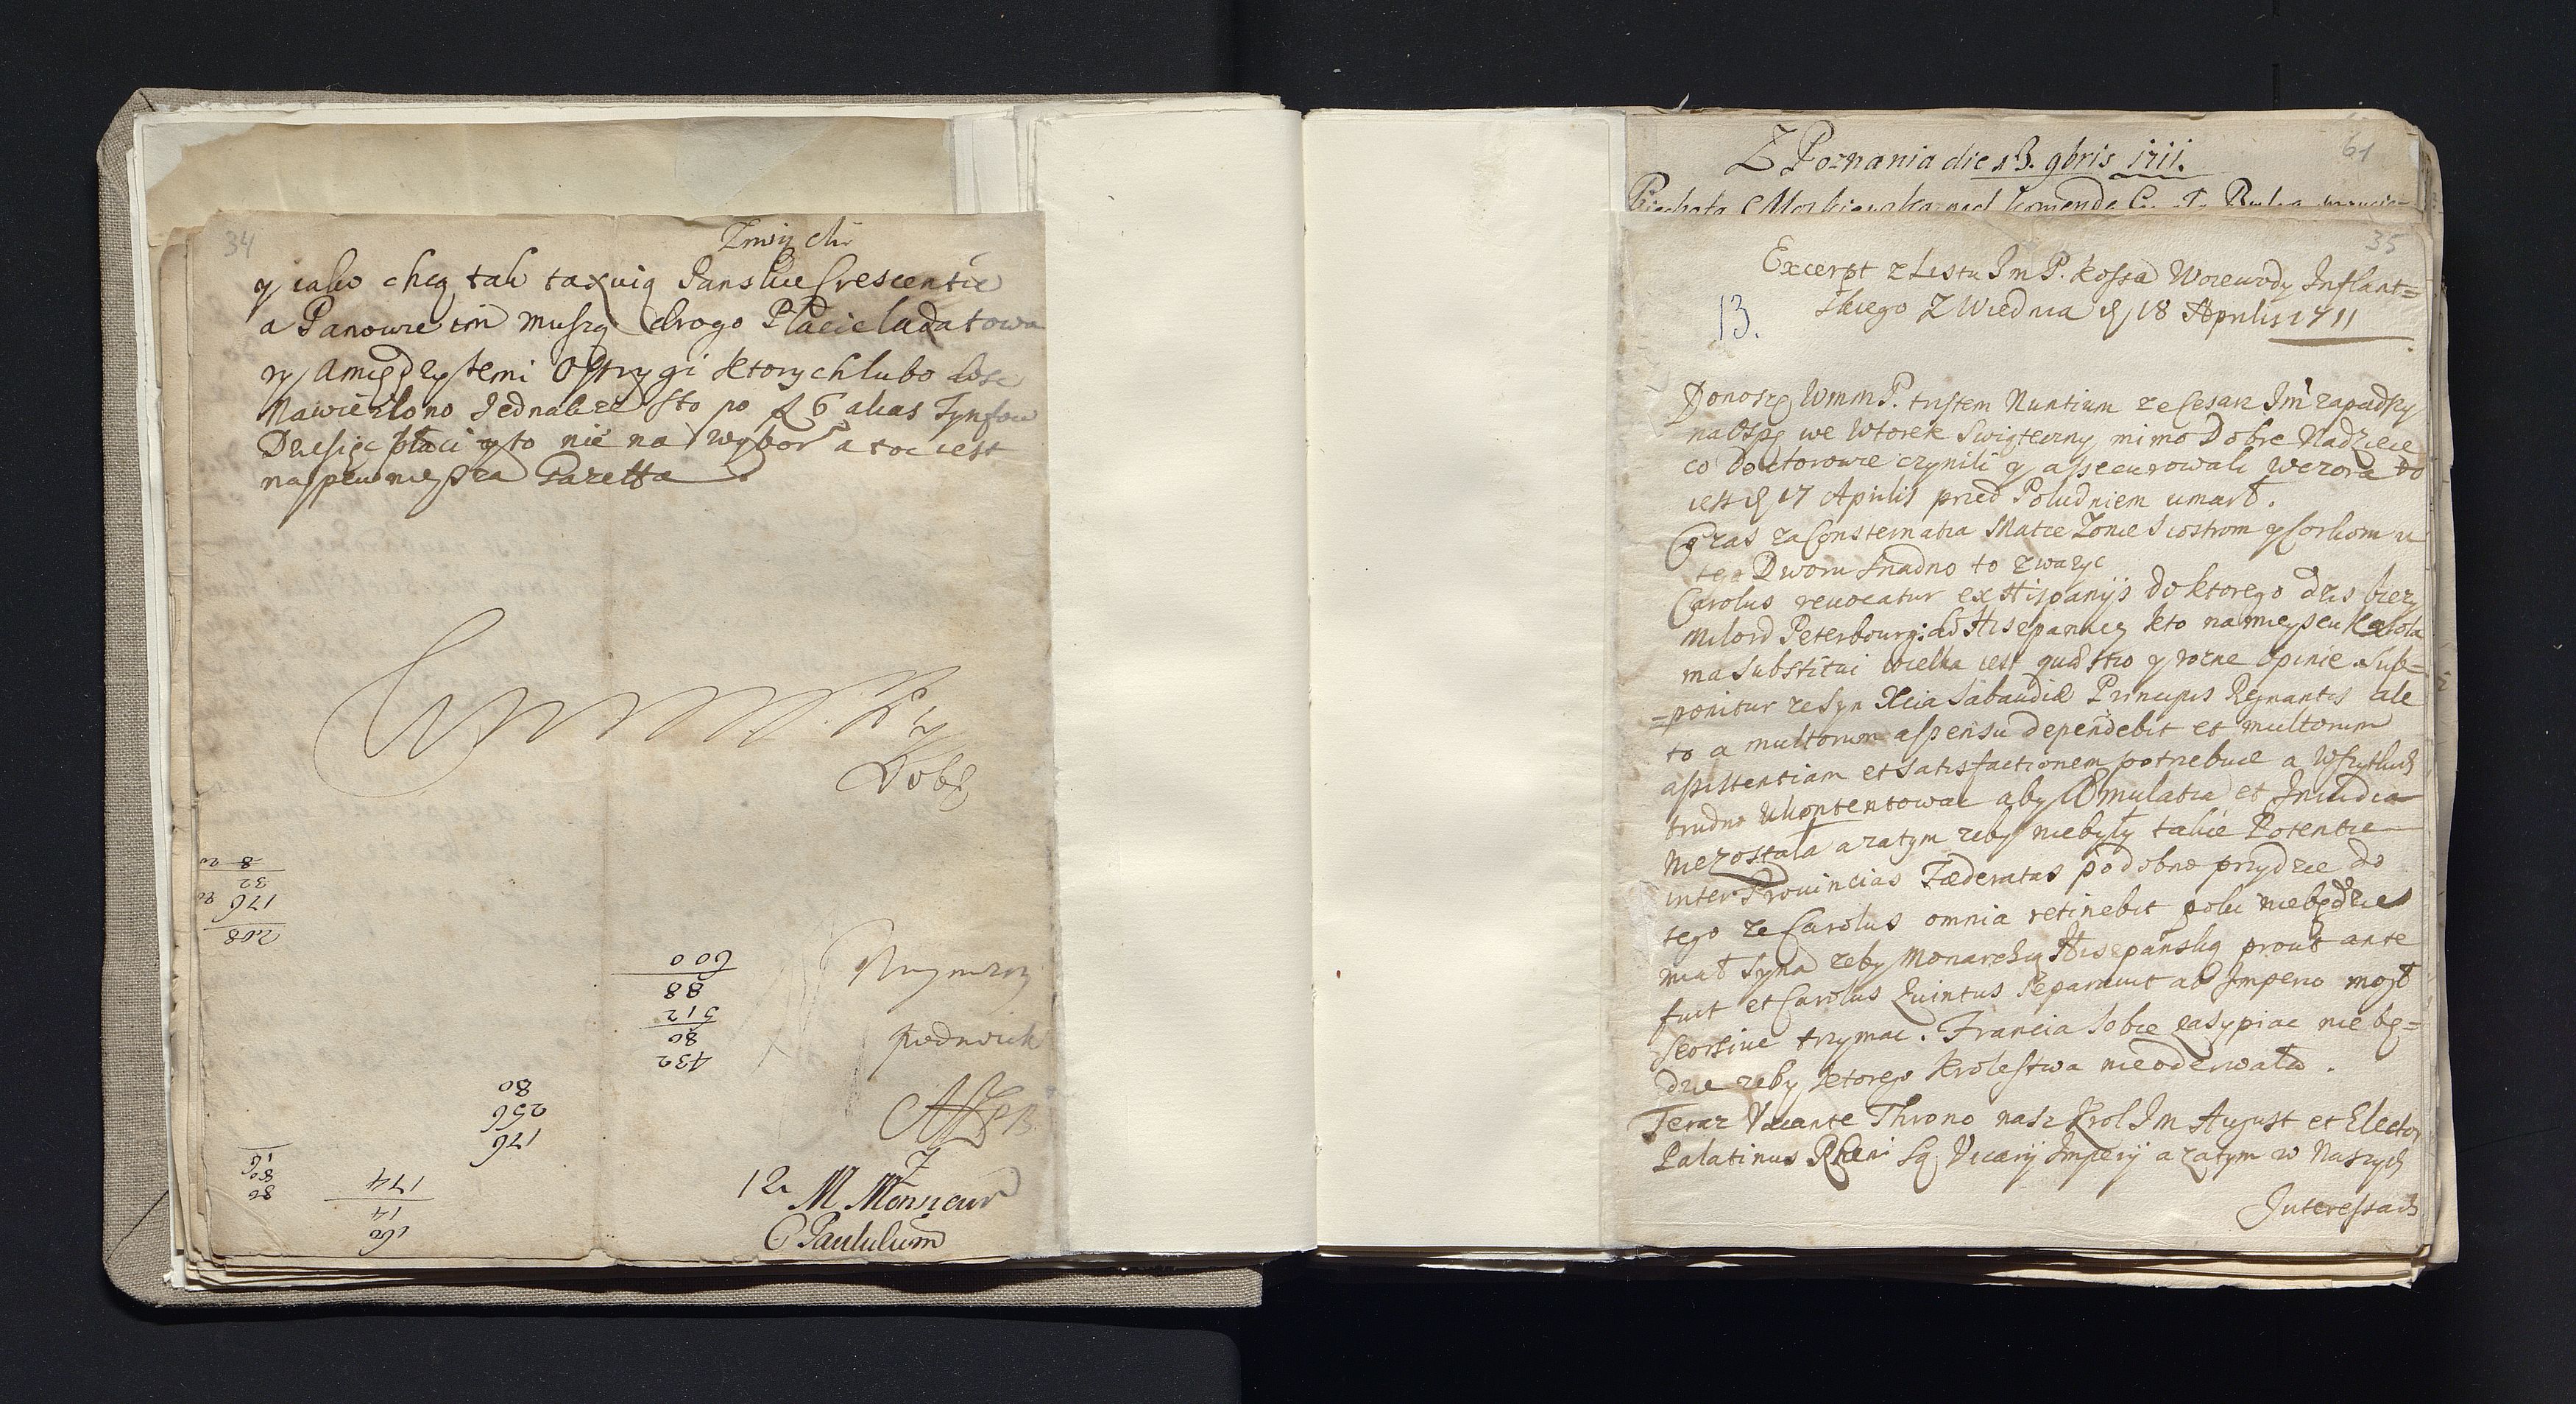 34
Zmij chi
y iako chcą tak taxuią Panskie Crescentie
a Panowie im muszą drogo Płacic ladatowa
ry a między temi Ostrygi ktorych lubo dosc
Nawiezlono Jednak ze sto po 6 alias Tynfow
Dziesięc płaci y to nie na wybor a toc iest
na pewnieysza Gazetta
Dobę
8
32
176
208
600
88
512
80
432
80
256
176
16
80
80
174
14
160
12 M Monsieur
C Paululum
Z Poznania die 13. 9bris 1711.
61
Piechota Moskiewska pod komendą
35
Excerpt z Listu Im P. Kossa Woiewody Inflant=
skiego Z Wiednia d 18 Aprilis 1711
13.
Donoszę WmmP. tristem Nuntium ze Cesarz Im zapadszy
na Ospę we Wtorek Swiąteczny mimo Dobre Nadzieie
co doctorowie czynili y assecurowali Wczora to
iest d 17 Aprilis przed Poludniem umarł.
Co za Consternatia Matce Zonie Siostrom y Corkom u
tego Dworu snadno to zwazyc
Carolus reuocatur ex Hispanijs do ktorego dzis biezy
Milord Peterbourg: ad Hiszpanią kto na mieyscu Karola
ma substitui wielka iest quæstio y rozne Opinie Sup=
=ponitur ze syn Xcia Sabaudiæ Principis Regnantis ale
to a multorum assensu dependebit et multorum
assistentiam et satisfactionem potrzebuie a Wszytkich
trudno Ukontentowac aby Æmulatia et Inuidia
niezostała a zatym zeby niebyły takie Potentie
inter Prouincias Fæderatas podobno przydzie do
tego ze Carolus omnia retinebit poki niebędzie
miał Syna zeby Monarchią Hiszpanską prout ante
fuit et Carolus Quintus separauit ab Imperio mogł
seorsiue trzymac. Francia Sobie zasypiac nie bę=
dzie zeby ktorego Krolestwa nieoderwała.
Teraz Vacante Throno nasz Krol Im August et Elector
Palatinus Rheni są Vicarij Imperij a zatym w Naszych
Interessach